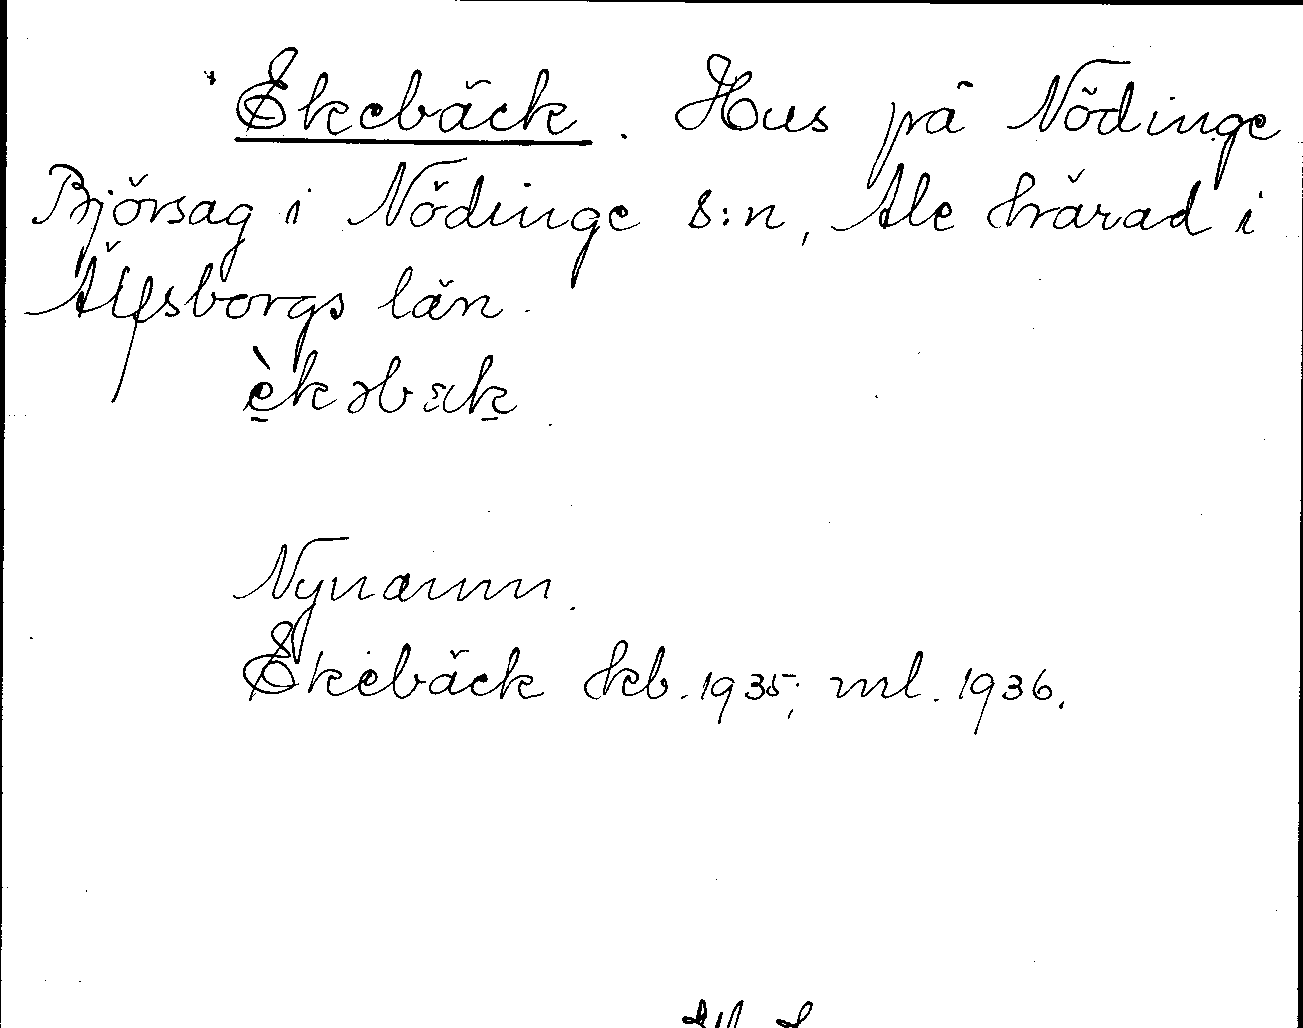 Ekebäck. Hus på Nödinge
Björsag i Nödinge s:n, Ale härad i
Älfsborgs län.
è̠kəbäk̠
Nynamn.
Ekebäck hkb. 1935; ml. 1936.